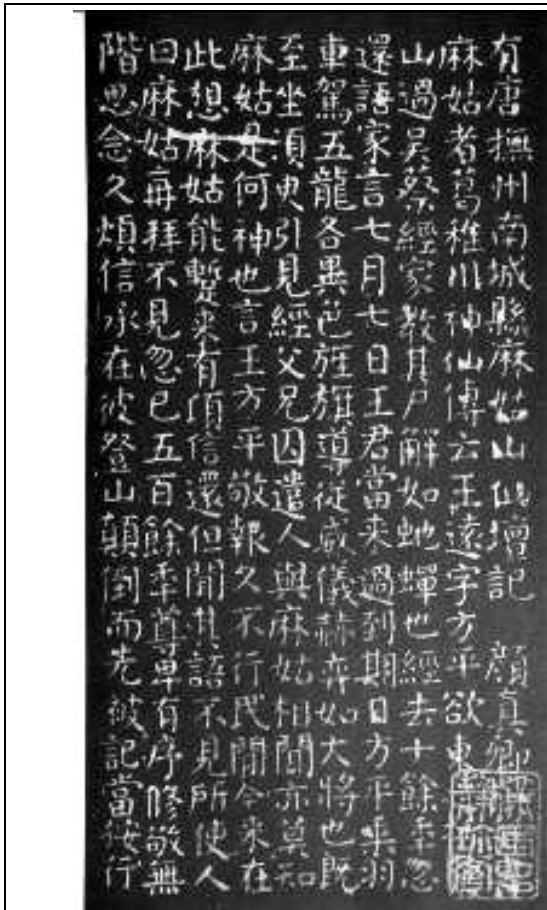 有唐撫州南城縣麻姑山仙壇記 顏真卿
麻姑者葛稚川神仙傳云王遠字方平欲東
山過吳蔡經家教其尸解如虵蟬也經去十餘年忽
還語家言七月七日王君當来過到期日方平乘羽
車駕五龍各異色旌旗導從威儀赫弈如大將也既
至坐須臾引見經父兄因遣人與麻姑相聞亦莫知
麻姑是何神也言王方平敬報久不行民間今来在
此想麻姑能蹔来有頃信還但聞其語不見所使人
曰麻姑再拜不見忽已五百餘年尊卑有序修敬無
階思念久煩信承在彼登山顛倒而先被記當按行